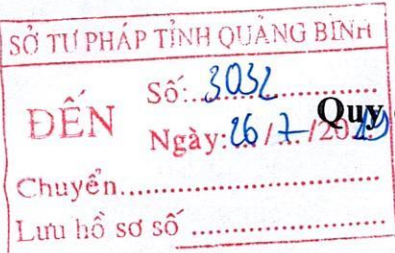 SỞ TƯ PHÁP TỈNH QUẢNG BÌNH
ĐẾN
Số: 3032
Ngày: 26/7/2019
Quy
Chuyển
Lưu hồ sơ số